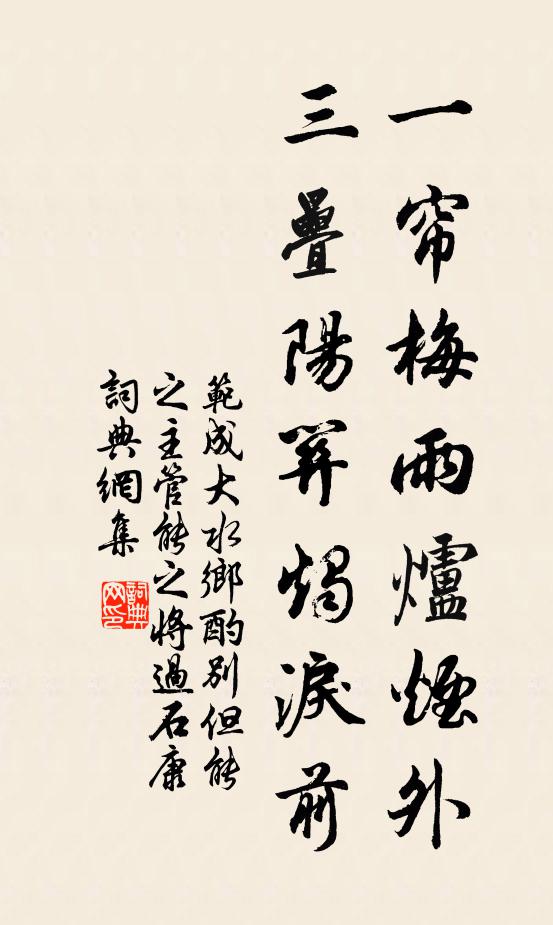 一帘梅雨爐煙外
三疊陽關燭淚前
範成大水鄉酌別但能
之主管能之將過石康
詞典網集
詞典
网印